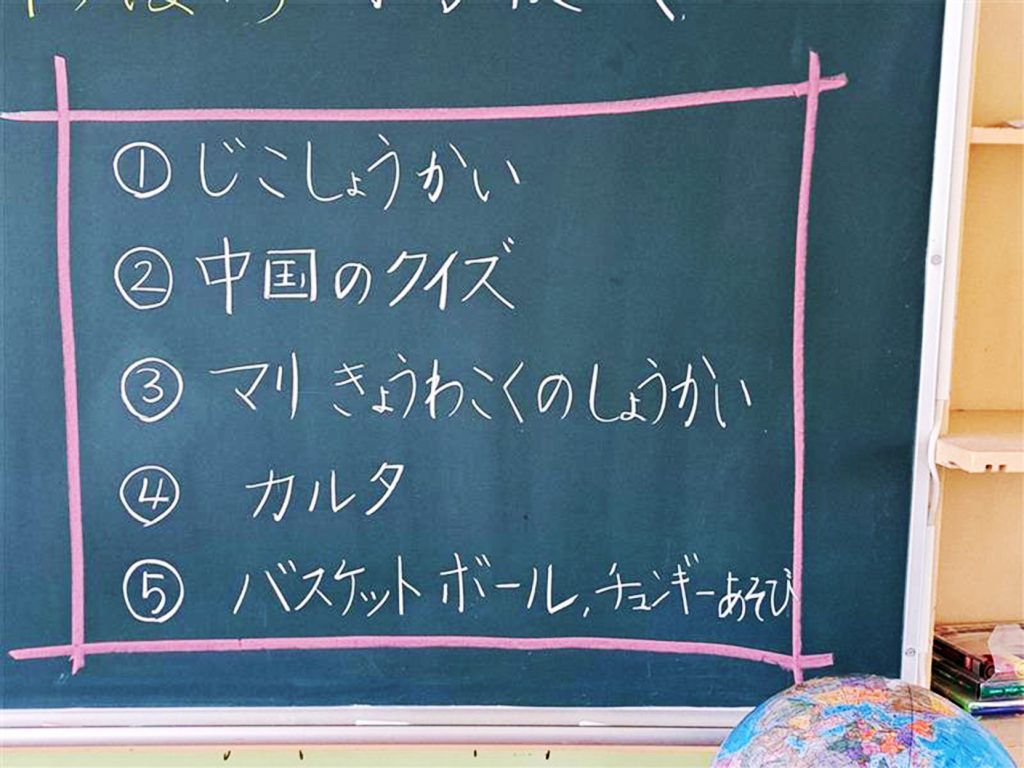 ①じこしょうかい
②中国のクイズ
③マリ きょうわこくのしょうかい
④ カルタ
⑤ バスケットボール,チュンギーあそび